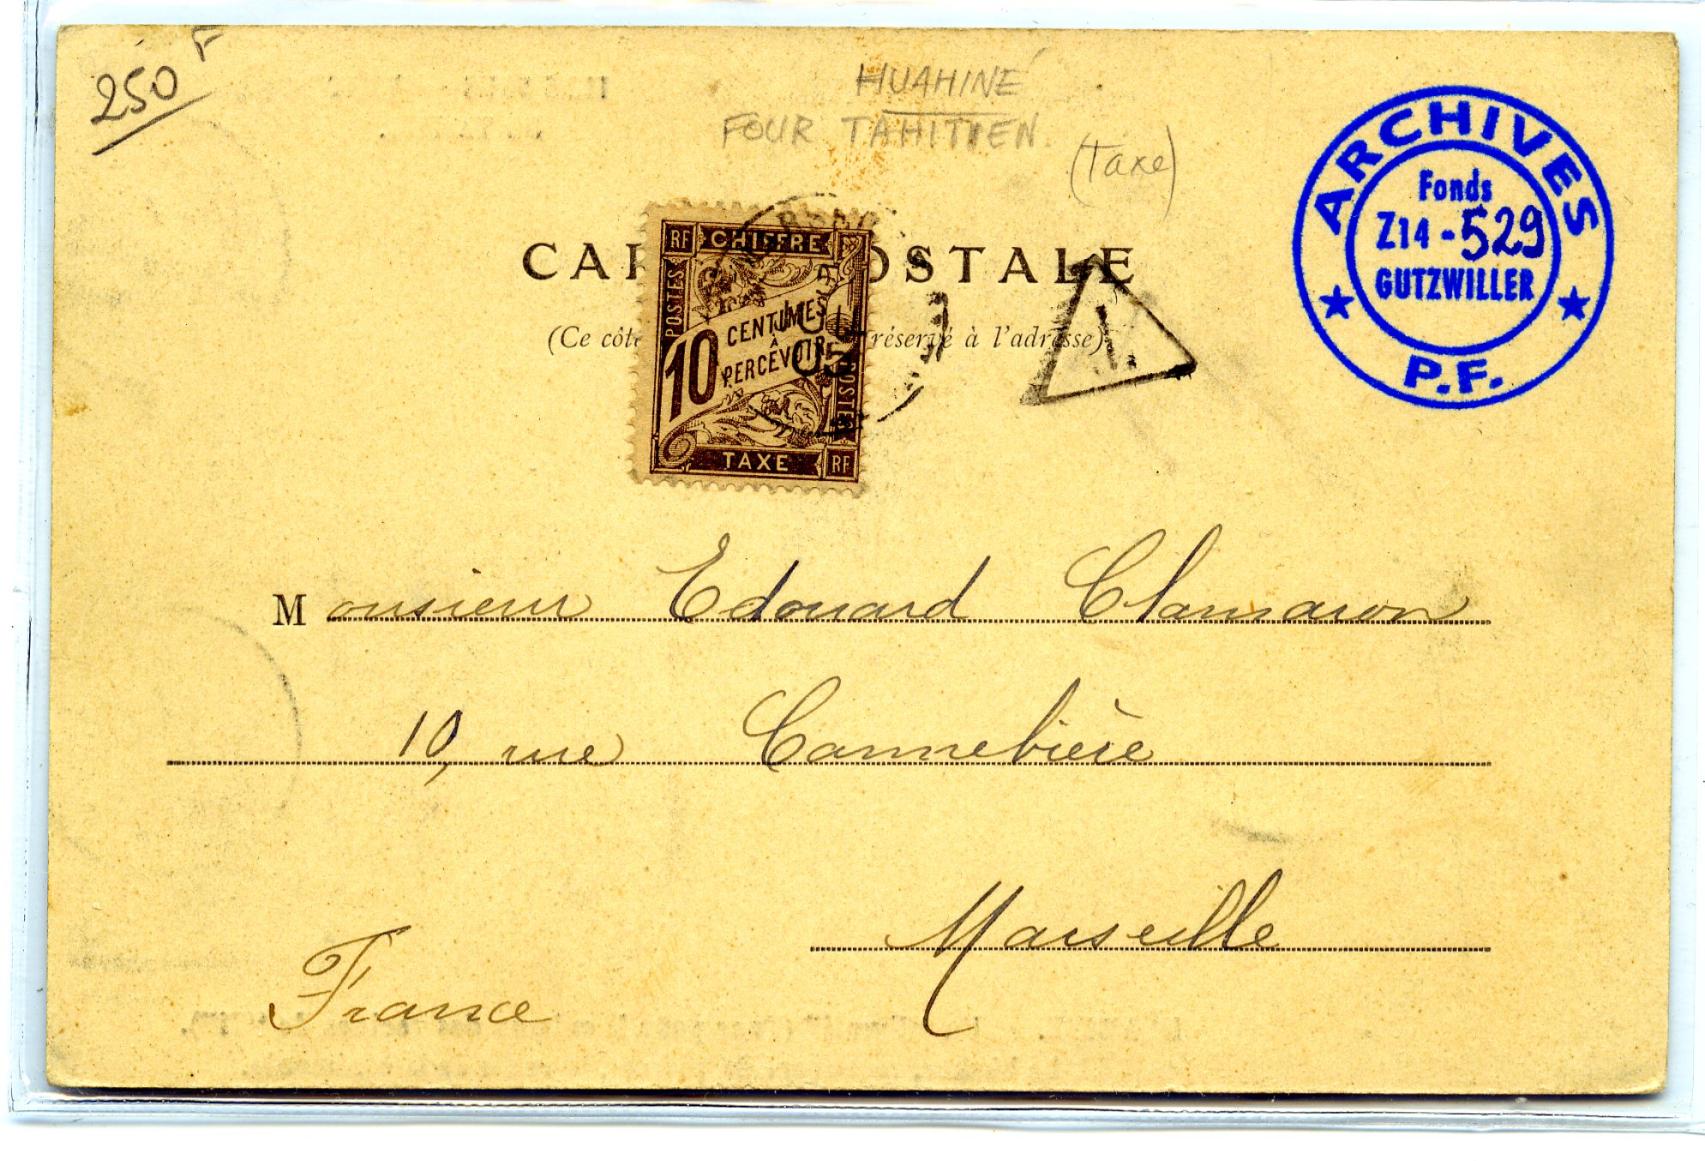 250 F
HUAHINE
FOUR TAHITIEN
(Taxe)
ARCHIVES
Fonds
Z14-529
GUTZWILLER
P.F.
CAR OSTALE
(Ce côté réservé à l'adresse)
RF CHIFFRE
POSTES
10 CENTIMES
À
PERCEVOIR
POSTES
TAXE RF
05
T
Monsieur Edouard Clamaron
10, rue Cannebière
Marseille
France